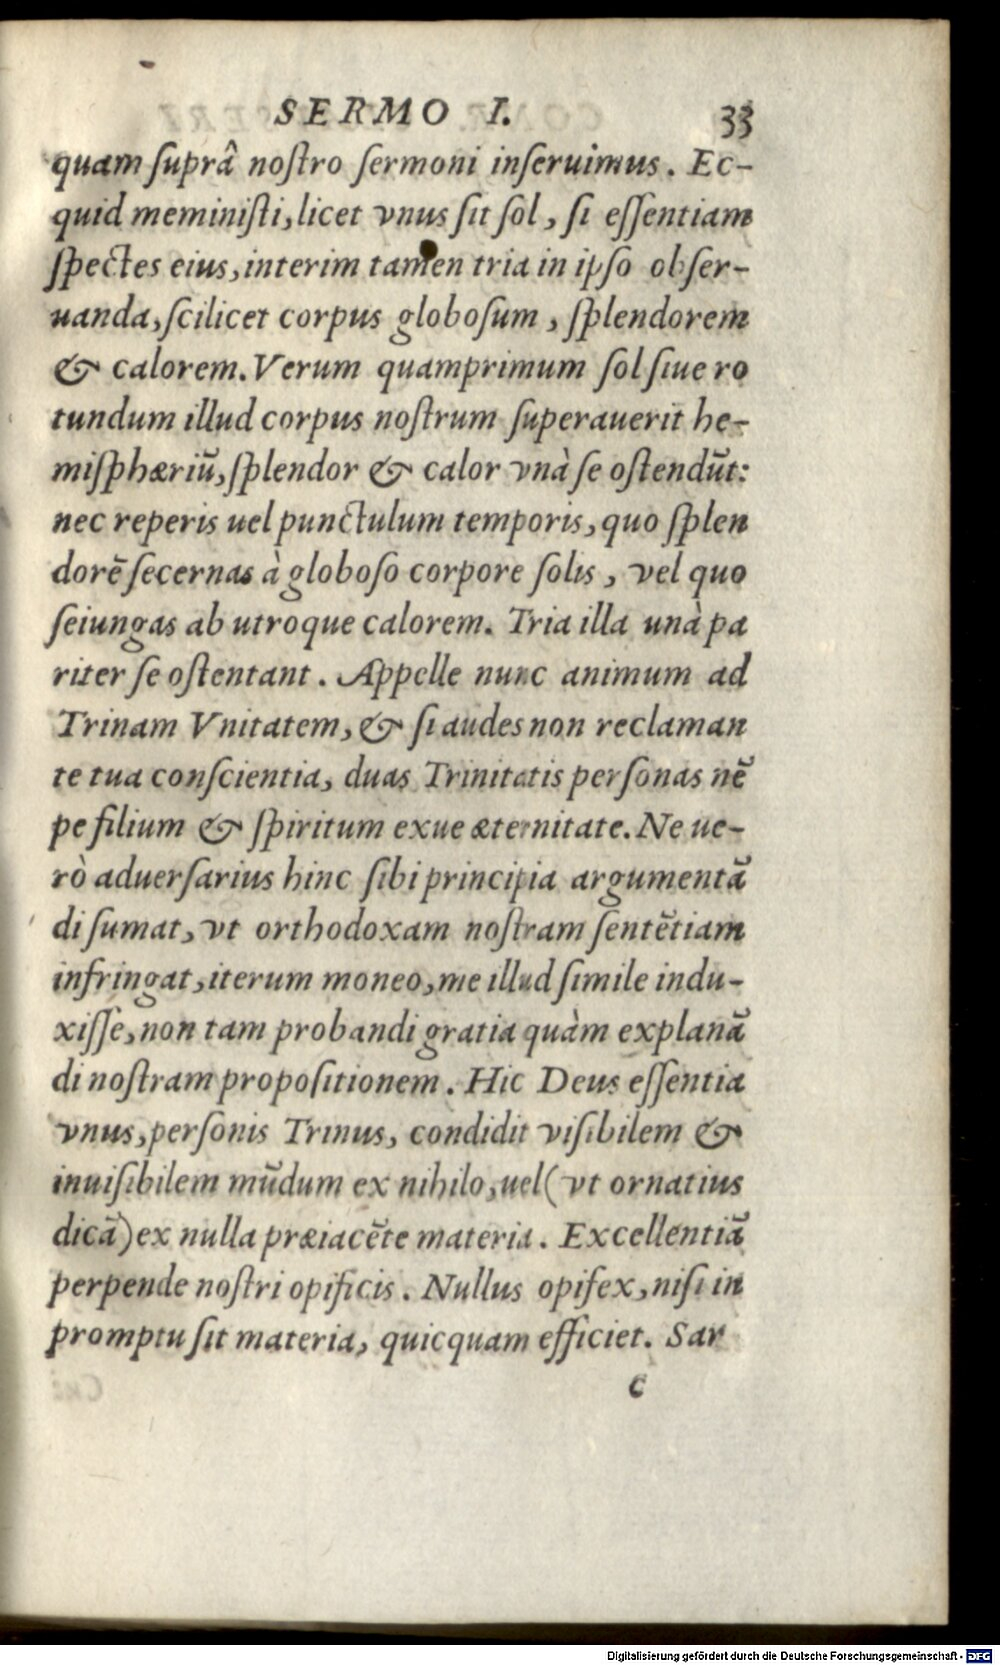 SERMO I. 33
quam suprâ nostro sermoni inseruimus. Ec-
quid meministi, licet vnus sit sol, si essentiam
spectes eius, interim tamen tria in ipso obser-
uanda, scilicet corpus globosum, splendorem
& calorem. Verum quamprimum sol siue ro
tundum illud corpus nostrum superauerit he-
misphæriũ, splendor & calor vnà se ostendũt:
nec reperis uel punctulum temporis, quo splen
dorẽ secernas à globoso corpore solis, vel quo
seiungas ab utroque calorem. Tria illa unà pa
riter se ostentant. Appelle nunc animum ad
Trinam Vnitatem, & si audes non reclaman
te tua conscientia, duas Trinitatis personas nẽ
pe filium & spiritum exue æternitate. Ne ue-
rò aduersarius hinc sibi principia argumentã
di sumat, vt orthodoxam nostram sentẽtiam
infringat, iterum moneo, me illud simile indu-
xisse, non tam probandi gratia quàm explanã
di nostram propositionem. Hic Deus essentia
vnus, personis Trinus, condidit visibilem &
inuisibilem mũdum ex nihilo, uel (vt ornatius
dicã) ex nulla præiacẽte materia. Excellentiã
perpende nostri opificis. Nullus opifex, nisi in
promptu sit materia, quicquam efficiet. Sar
c
Digitalisierung gefördert durch die Deutsche Forschungsgemeinschaft - DFG